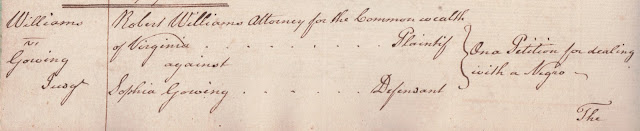 Williams Robert Williams Attorney for the Common wealth
vs of Virginia . . . . . . . Plaintif
Gowing against
Judgt Sophia Gowing . . . . . . Defendant
On a Petition for dealing
with a Negro
The